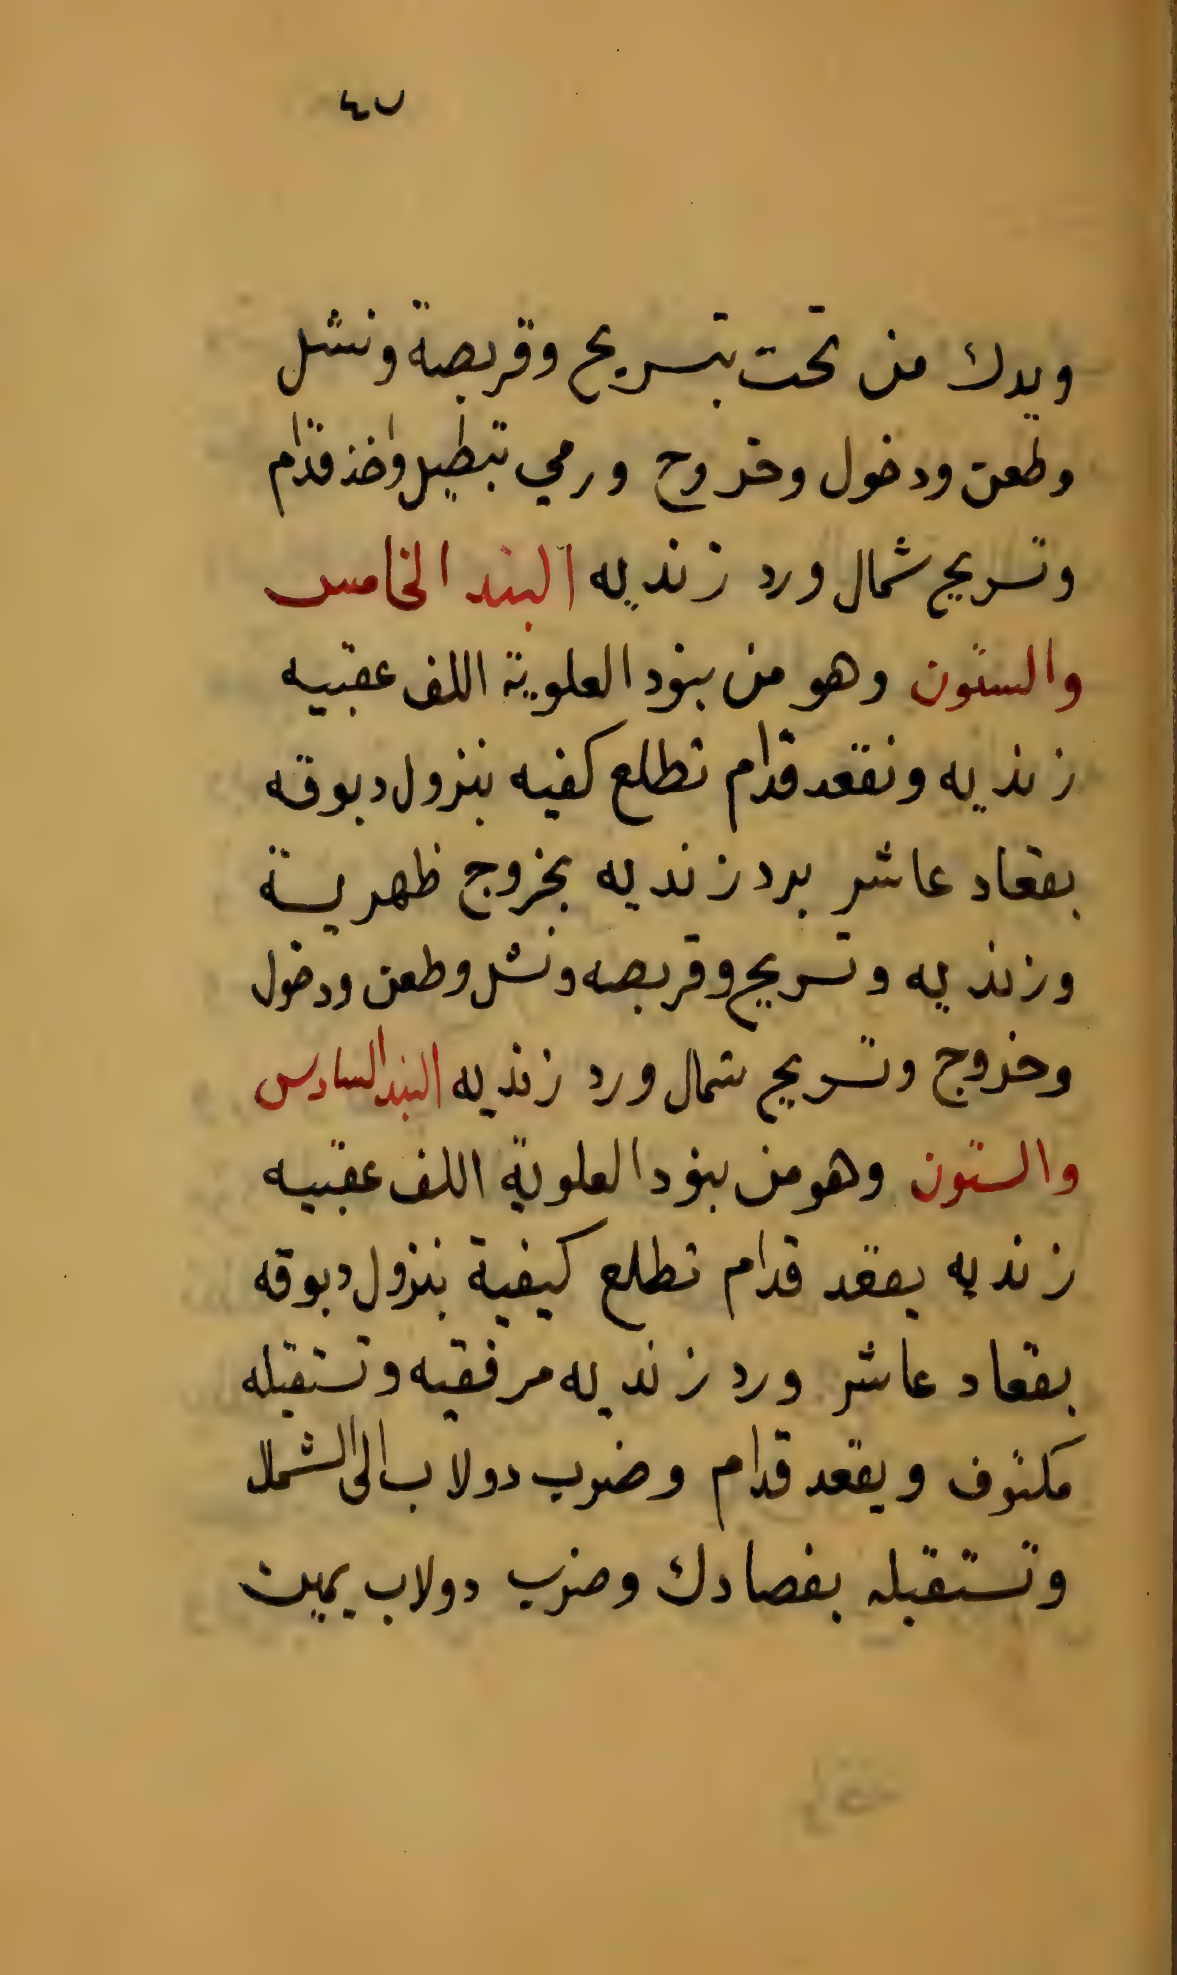 ٤٧
ويدك من تحت بتسريح وقربصة ونشل
وطعن ودخول وخروج ورمي تبطيل واخذ قدام
وتسريح شمال ورد زنديه البند الخامس
والستون وهو من بنود العلوية اللف عقبيه
زنديه ونقعد قدام تطلع كفيه بنزول دبوقه
بقعاد عاشر برد زنديه بخروج ظهرية
وزنديه وتسريح وقربصه ونشل وطعن ودخول
وخروج وتسريح شمال ورد زنديه البند السادس
والستون وهو من بنود العلوية اللف عقبيه
زنديه يقعد قدام تطلع كيفية بنزول دبوقه
بقعاد عاشر ورد زنديه مرفقيه وتستقبله
مكتوف ويقعد قدام وضرب دولاب الى الشمال
وتستقبله بفصادك وضرب دولاب يمين